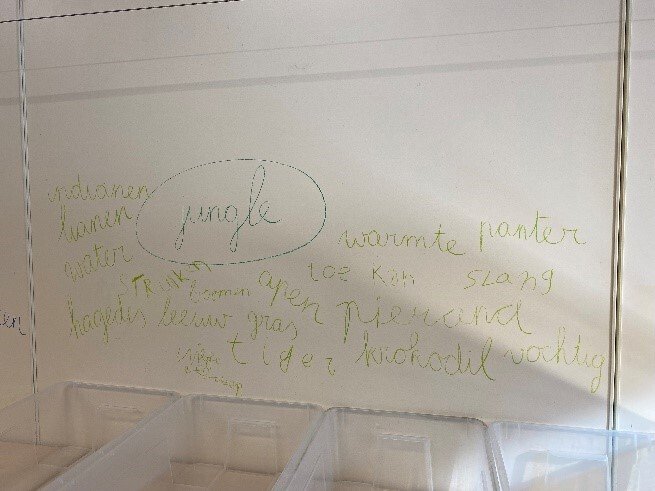 indianen
lianen
water
jungle
warmte panter
struikn
boomen apen toe kan slang
hagedis leeuw gras pierand
tiger krokodil vochtig
en